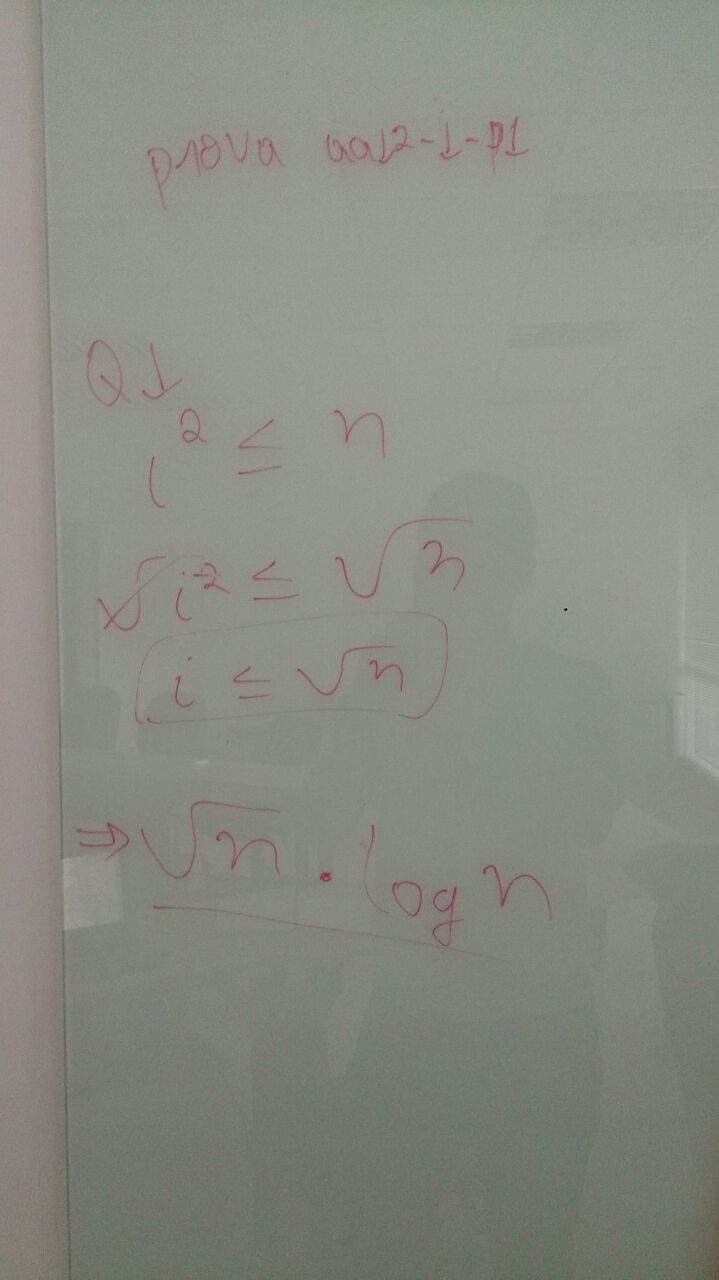 prova aa12-1-p1
Q1
i² ≤ n
√i² ≤ √n
i ≤ √n
⇒ √n · log n